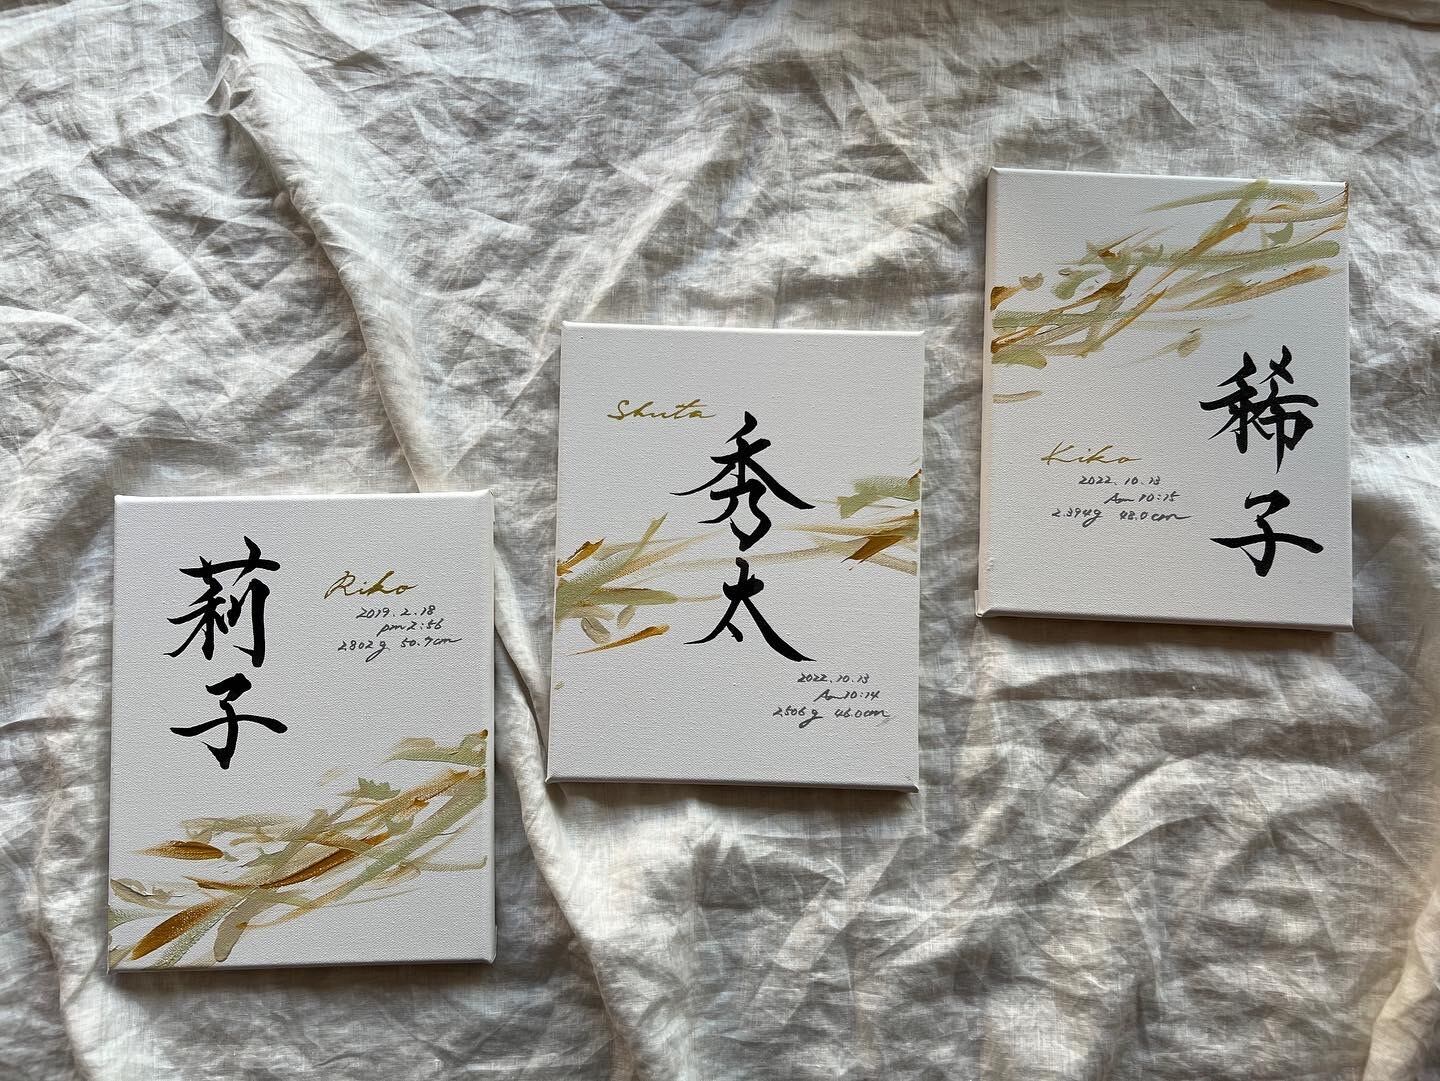 莉子
Riko
2019.2.18
pm2:56
2802g 50.7cm
Shuta
秀太
2022.10.13
Am10:14
2506g 46.0cm
稀子
Kiko
2022.10.13
Am10:15
2.394g 48.0cm